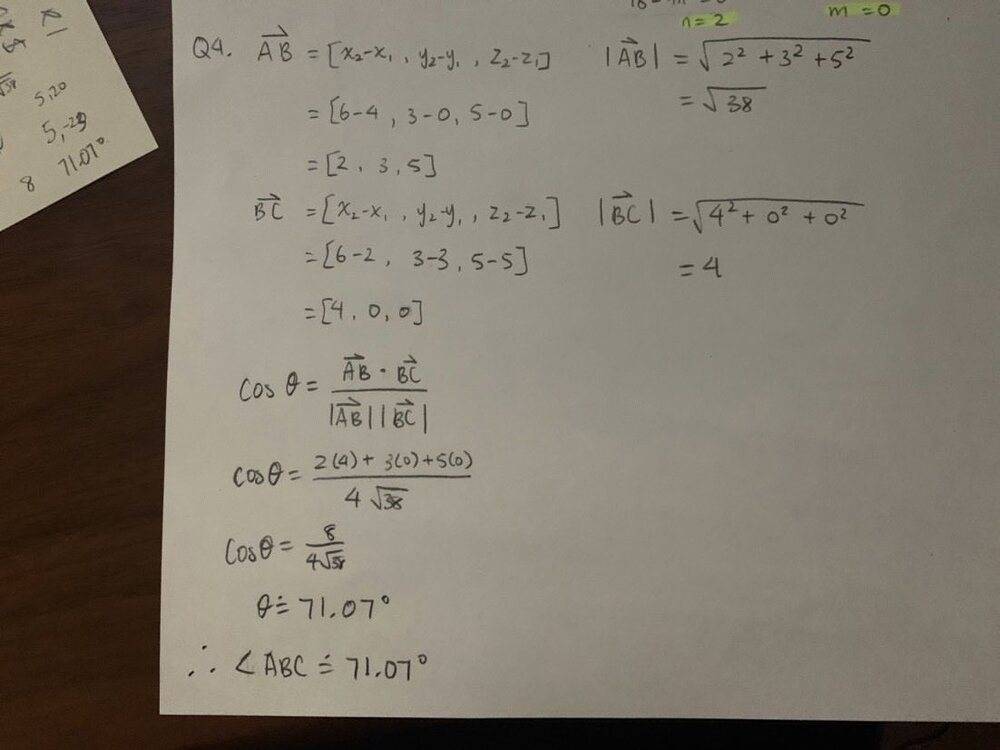 n = 2
m = 0
Q4. AB⃗ = [x₂-x₁, y₂-y₁, z₂-z₁]
|AB⃗| = √(2² + 3² + 5²)
= √38
= [6-4, 3-0, 5-0]
= [2, 3, 5]
BC⃗ = [x₂-x₁, y₂-y₁, z₂-z₁]
|BC⃗| = √(4² + 0² + 0²)
= 4
= [6-2, 3-3, 5-5]
= [4, 0, 0]
cos θ = (AB⃗ · BC⃗) / (|AB⃗||BC⃗|)
cos θ = (2(4) + 3(0) + 5(0)) / (4√38)
cos θ = 8 / (4√38)
θ ≐ 71.07°
∴ ∠ABC ≐ 71.07°
5,20
71.07°
8